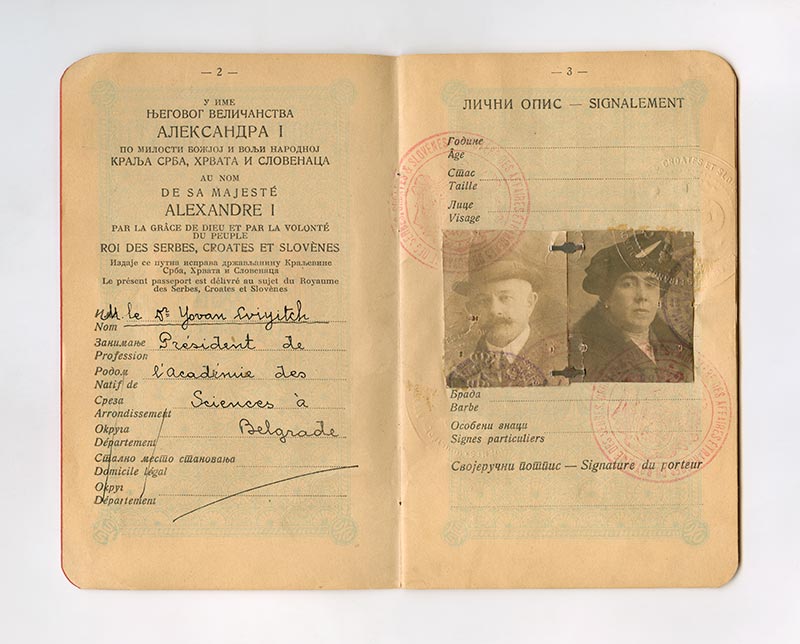 — 2 —
У ИМЕ
ЊЕГОВОГ ВЕЛИЧАНСТВА
АЛЕКСАНДРА I
ПО МИЛОСТИ БОЖЈОЈ И ВОЉИ НАРОДНОЈ
КРАЉА СРБА, ХРВАТА И СЛОВЕНАЦА
AU NOM
DE SA MAJESTÉ
ALEXANDRE I
PAR LA GRÂCE DE DIEU ET PAR LA VOLONTÉ
DU PEUPLE
ROI DES SERBES, CROATES ET SLOVÈNES
Издаје се путна исправа држављанину Краљевине
Срба, Хрвата и Словенаца
Le présent passeport est délivré au sujet du Royaume
des Serbes, Croates et Slovènes
M. le Dr Yovan Cviyitch
Nom
Занимање Président de
Profession
Родом l'Académie des
Natif de
Среза Sciences à
Arrondissement
Округа Belgrade
Département
Стално место становања
Domicile légal
Округ
Département
— 3 —
ЛИЧНИ ОПИС — SIGNALEMENT
Године
Âge
Стас
Taille
Лице
Visage
Брада
Barbe
Особени знаци
Signes particuliers
Својеручни потпис — Signature du porteur